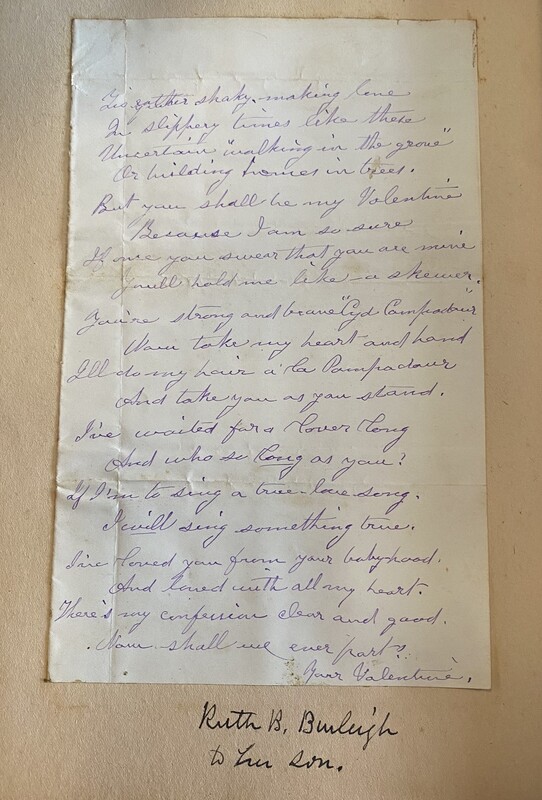 Tis rather shaky-making love
In slippery times like these
Uncertain "walking in the grove"
Or building homes in trees.
But you shall be my Valentine
Because I am so sure
If once you swear that you are mine
You'll hold me like - a skewer.
You're strong and brave "Cyd Campadour"
Now take my heart and hand
I'll do my hair a la Pompadour
And take you as you stand.
I've waited for a lover long
And who so long as you?
If I'm to sing a true-love song.
I will sing something true.
I've loved you from your babyhood.
And loved with all my heart.
There's my confession clear and good.
Now shall we ever part?
Your Valentine.
Ruth B. Burleigh
to her son.